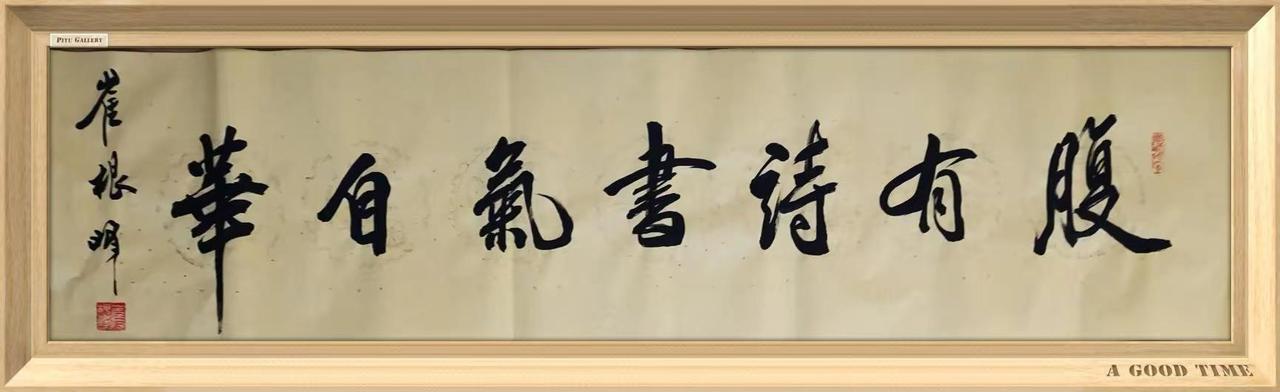 PITU GALLERY
腹有詩書氣自華
崔根明
A GOOD TIME